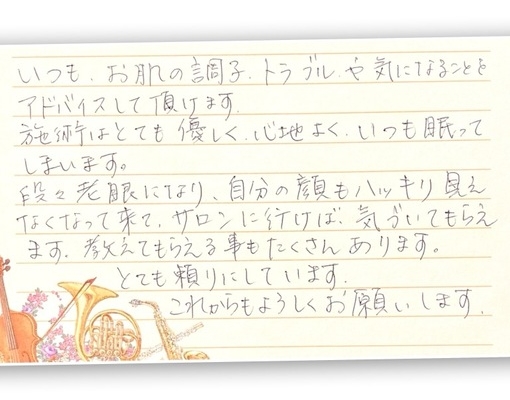 いつも、お肌の調子、トラブル、や気になることを
アドバイスして頂けます。
施術はとても優しく、心地よく、いつも眠って
しまいます。
段々老眼になり、自分の顔もハッキリ見え
なくなって来て、サロンに行けば、気づいてもらえ
ます。教えてもらえる事もたくさんあります。
とても頼りにしています。
これからもよろしくお願いします。